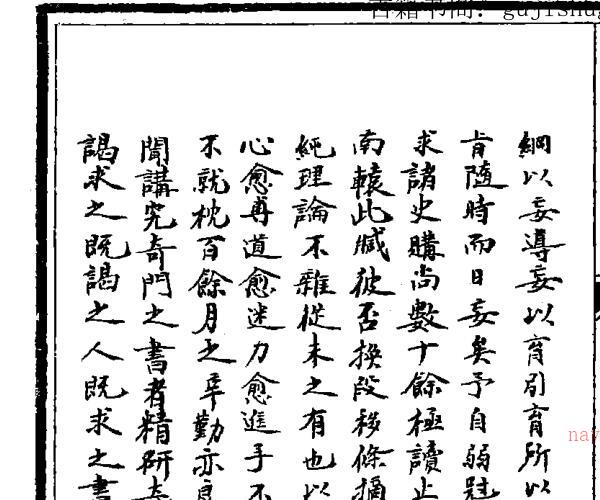 古籍书阁：gujishug
綱以妄導妄以盲引盲所以
肯隨時而日妄矣予自弱冠
求諸史購尚數十餘極讀止
南轅此臧彼否換段移條摘
純理論不雜從未之有也以
心愈專道愈迷力愈進手不
不就枕百餘月之辛勤亦良
聞講究奇門之書者精研
謁求之既謁之人既求之書
nay